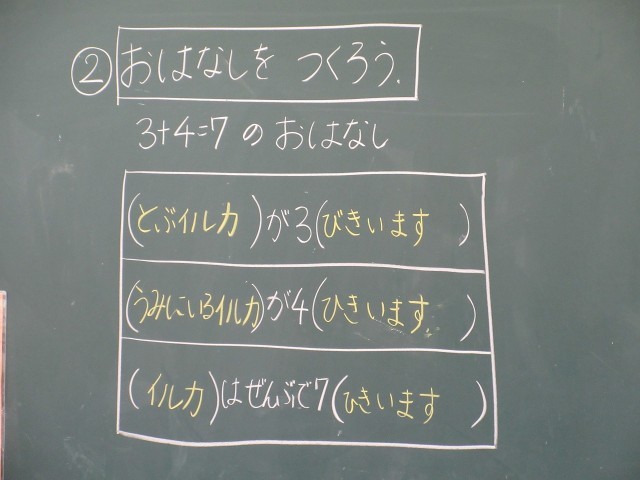 ② おはなしを つくろう.
3+4=7 の おはなし
(とぶイルカ)が3(びきいます)
(うみにいるイルカ)が4(ひきいます.)
(イルカ)はぜんぶで7(ひきいます)